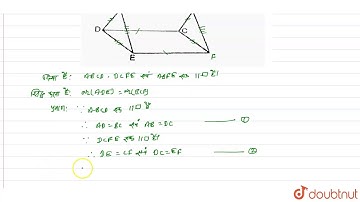 D
C
E
F
दिया है: ABCD, DCFE एवं ABFE एक ||□ है।
सिद्ध करना है: ar(ADE) = ar(BCF)
प्रमाण: ∵ ABCD एक ||□ है।
∴ AD = BC एवं AB = DC ——— ①
∵ DCFE एक ||□ है।
∴ DE = CF एवं DC = EF ——— ②
doubtnut